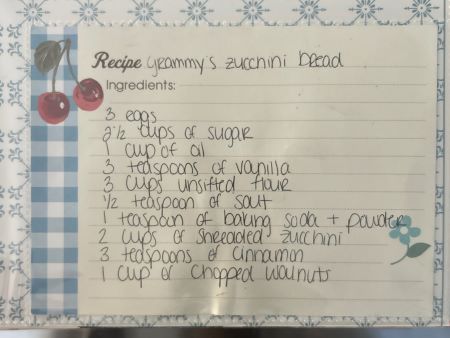 Recipe Grammy's zucchini bread
Ingredients:
3 eggs
2 1/2 cups of sugar
1 cup of oil
3 teaspoons of vanilla
3 cups unsifted flour
1/2 teaspoon of salt
1 teaspoon of baking soda + powder
2 cups of shreaded zucchini
3 teaspoons of cinnamon
1 cup of chopped walnuts